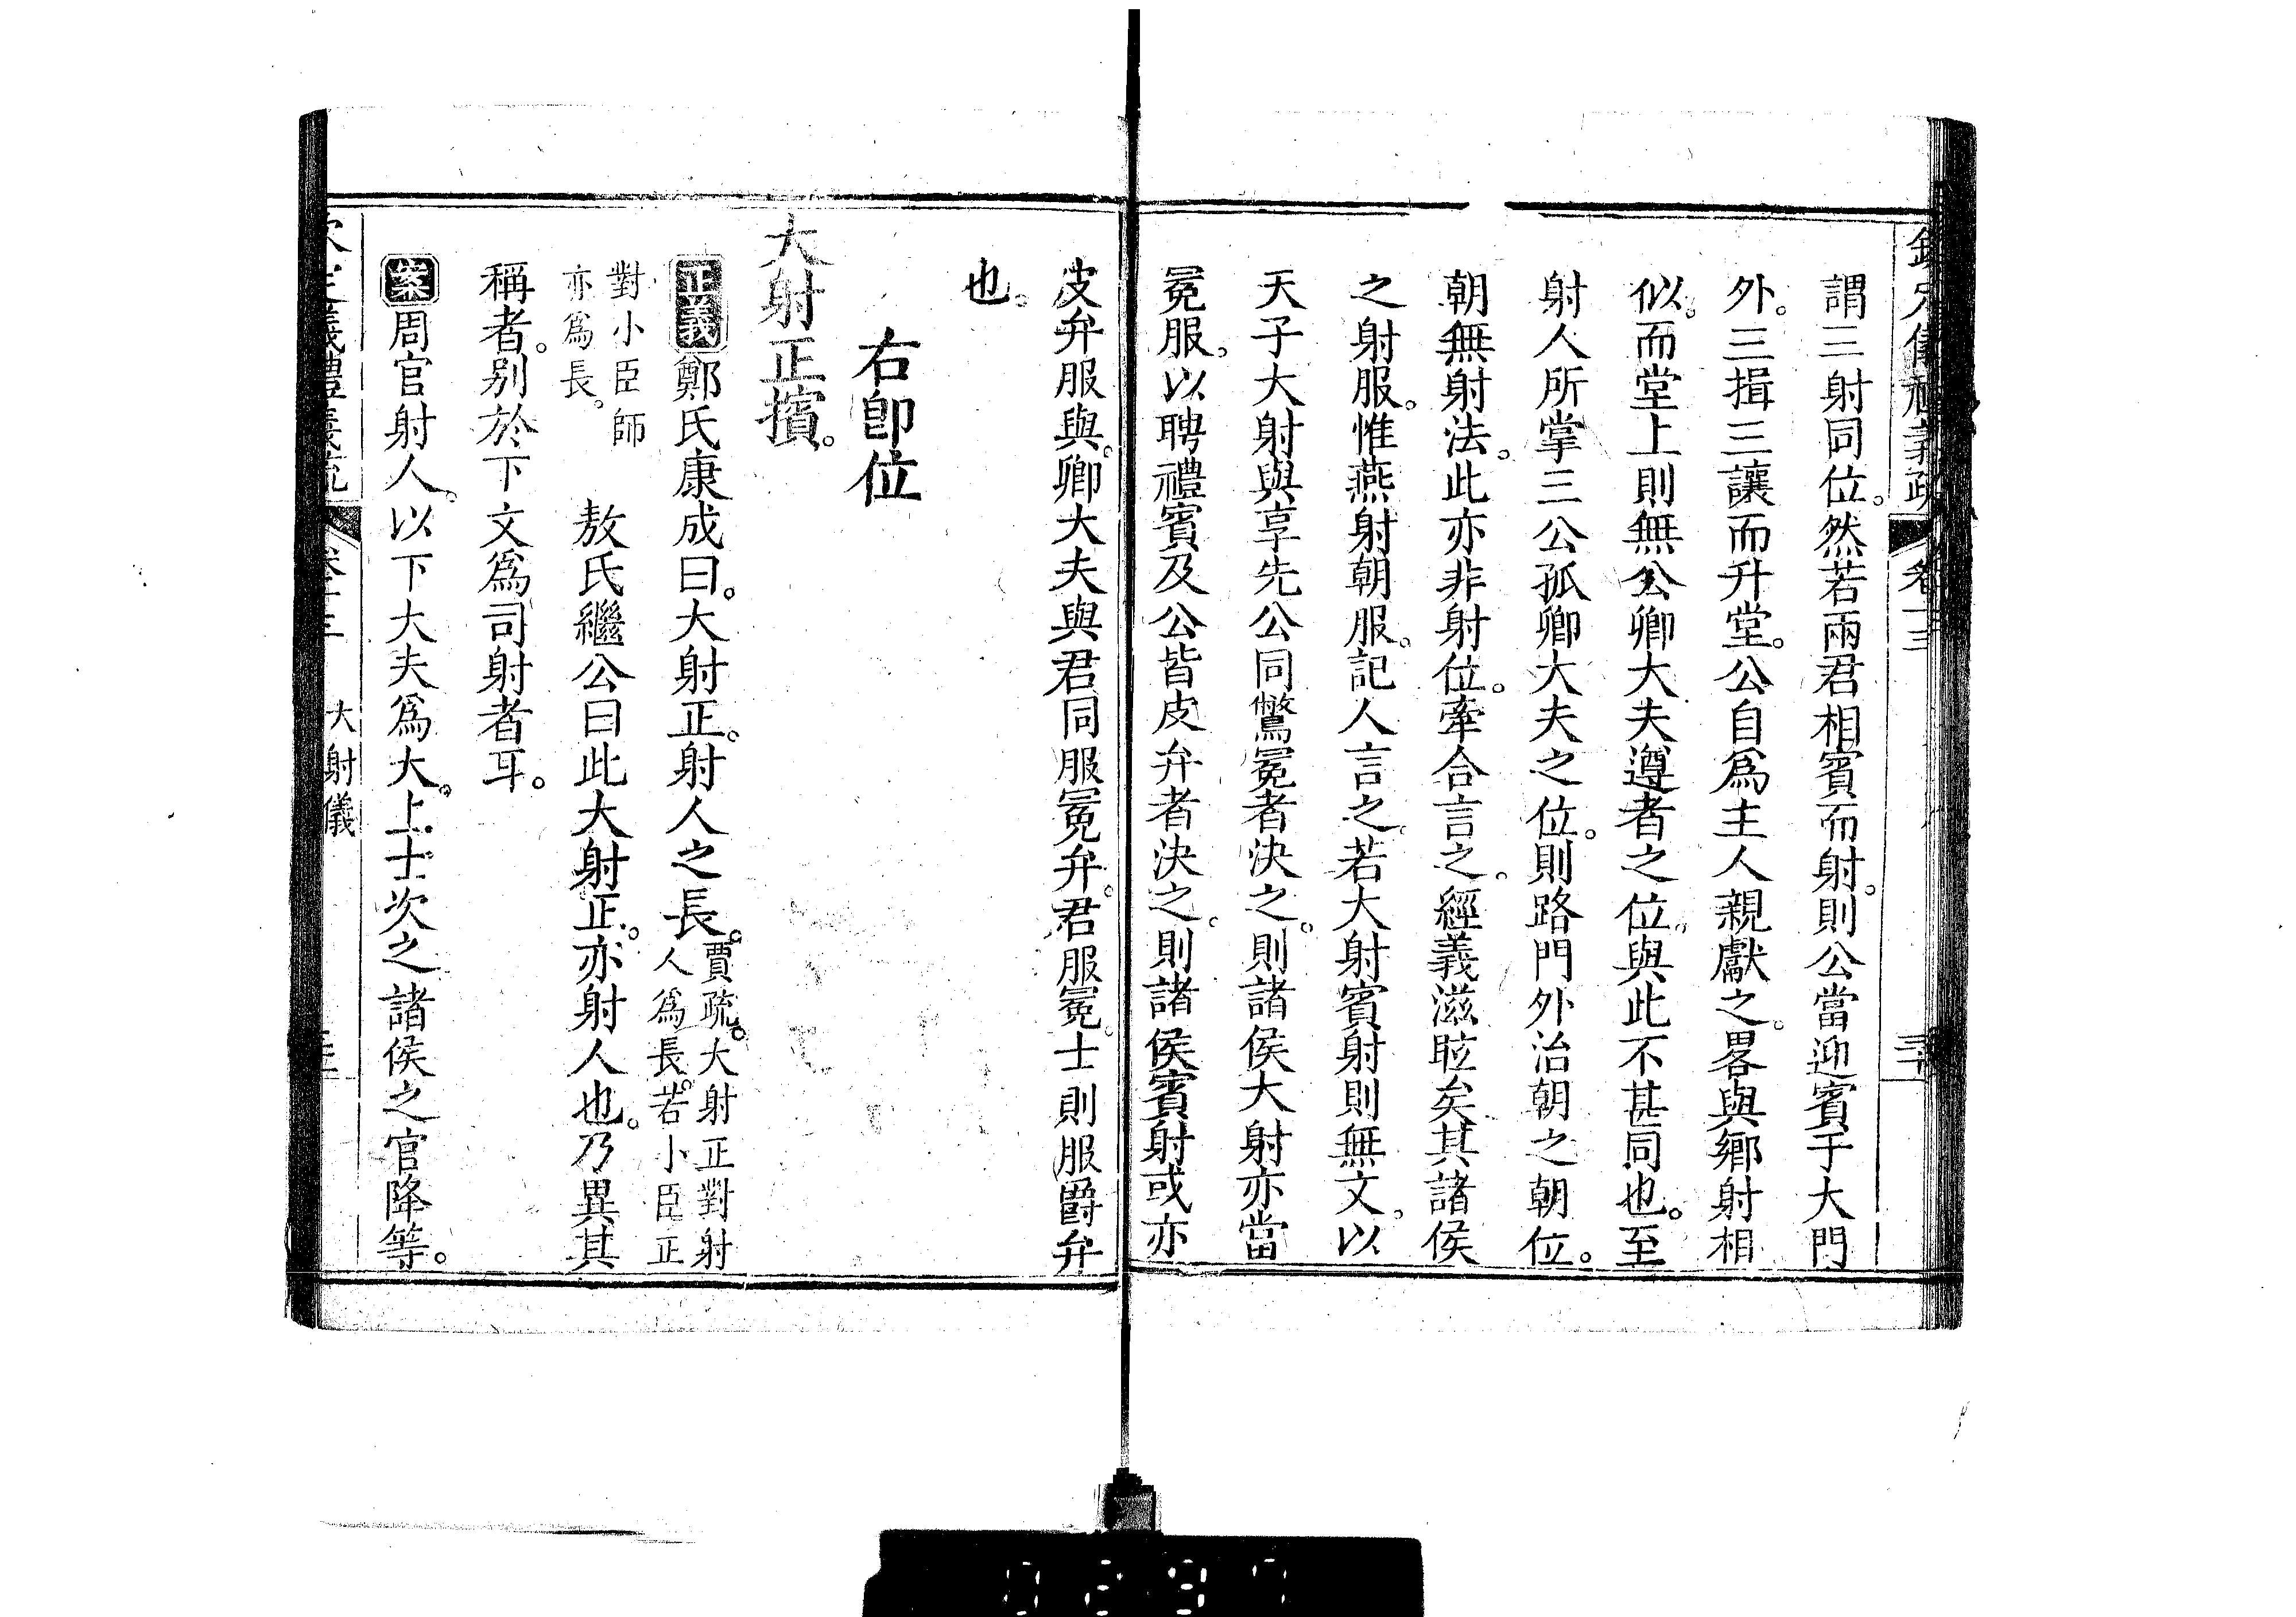 欽定儀禮義疏 卷十三
謂三射同位。然若兩君相賓而射。則公當迎賓于大門
外。三揖三讓而升堂。公自爲主人親獻之。畧與鄉射相
似。而堂上則無公卿大夫遵者之位。與此不甚同也。至
射人所掌三公孤卿大夫之位。則路門外治朝之朝位。
朝無射法。此亦非射位。牽合言之。經義滋眩矣。其諸侯
之射服。惟燕射朝服。記人言之。若大射賓射則無文。以
天子大射與享先公同鷩冕者決之。則諸侯大射亦當
冕服。以聘禮賓及公皆皮弁者決之。則諸侯賓射或亦
皮弁服與。卿大夫與君同服冕弁。君服冕。士則服爵弁
也。
右卽位
大射正擯。
正義鄭氏康成曰。大射正。射人之長。賈疏。大射正對射
人爲長。若小臣正
對小臣師
亦爲長。 敖氏繼公曰此大射正。亦射人也。乃異其
稱者。别於下文爲司射者耳。
案周官射人。以下大夫爲大。上士次之諸侯之官降等。
欽定儀禮義疏 卷十三 大射儀